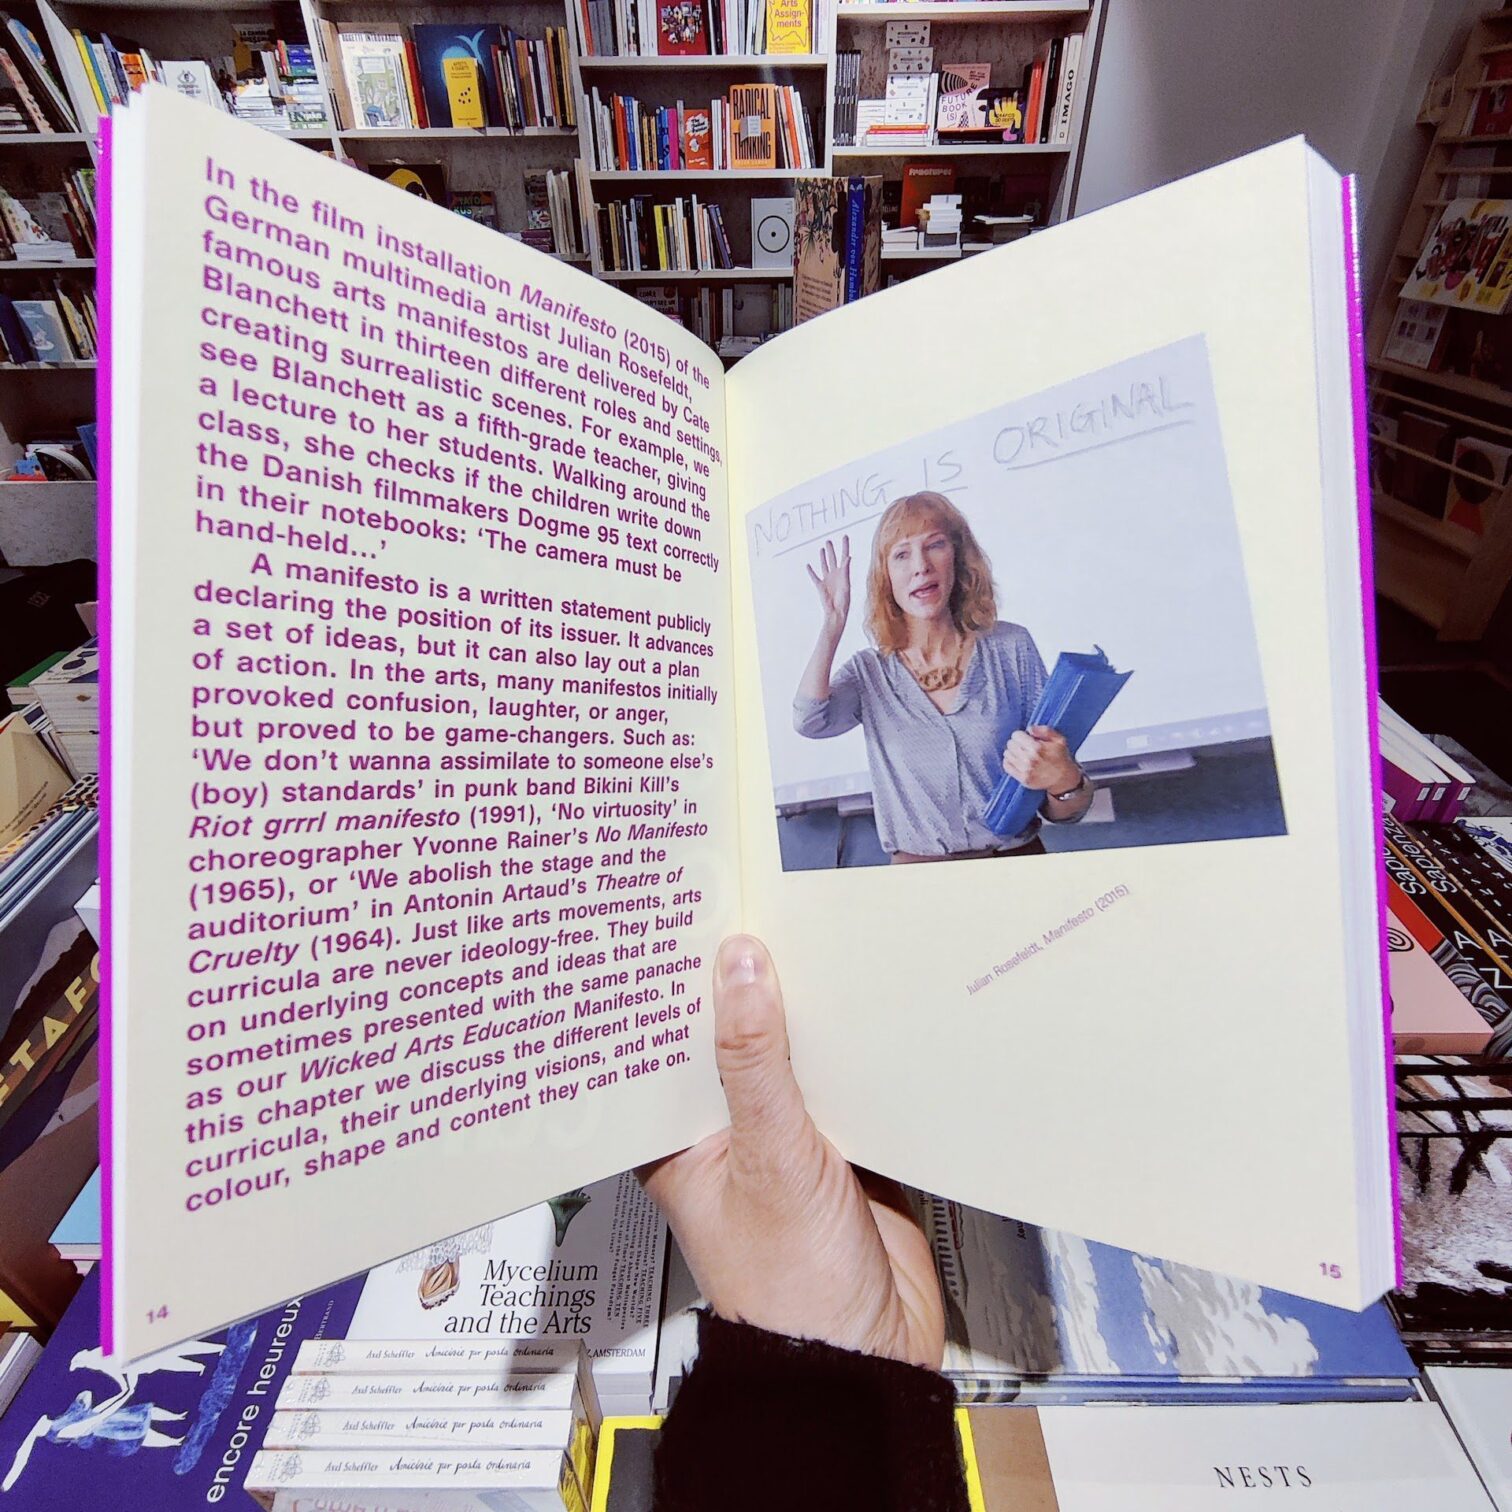 Arts
Assign-
ments
RADICAL
THINKING
FUTURE
BOOK
(S)
IMAGO
Fractures
Alexander von Humboldt
In the film installation Manifesto (2015) of the
German multimedia artist Julian Rosefeldt,
famous arts manifestos are delivered by Cate
Blanchett in thirteen different roles and settings,
creating surrealistic scenes. For example, we
see Blanchett as a fifth-grade teacher, giving
a lecture to her students. Walking around the
class, she checks if the children write down
the Danish filmmakers Dogme 95 text correctly
in their notebooks: ‘The camera must be
hand-held...’
A manifesto is a written statement publicly
declaring the position of its issuer. It advances
a set of ideas, but it can also lay out a plan
of action. In the arts, many manifestos initially
provoked confusion, laughter, or anger,
but proved to be game-changers. Such as:
‘We don’t wanna assimilate to someone else’s
(boy) standards’ in punk band Bikini Kill’s
Riot grrrl manifesto (1991), ‘No virtuosity’ in
choreographer Yvonne Rainer’s No Manifesto
(1965), or ‘We abolish the stage and the
auditorium’ in Antonin Artaud’s Theatre of
Cruelty (1964). Just like arts movements, arts
curricula are never ideology-free. They build
on underlying concepts and ideas that are
sometimes presented with the same panache
as our Wicked Arts Education Manifesto. In
this chapter we discuss the different levels of
curricula, their underlying visions, and what
colour, shape and content they can take on.
14
NOTHING IS ORIGINAL
Julian Rosefeldt, Manifesto (2015)
15
Mycelium
Teachings
and the Arts
AMSTERDAM
encore heureux
Axel Scheffler Amicizie per posta ordinaria
Axel Scheffler Amicizie per posta ordinaria
Axel Scheffler Amicizie per posta ordinaria
Axel Scheffler Amicizie per posta ordinaria
NESTS